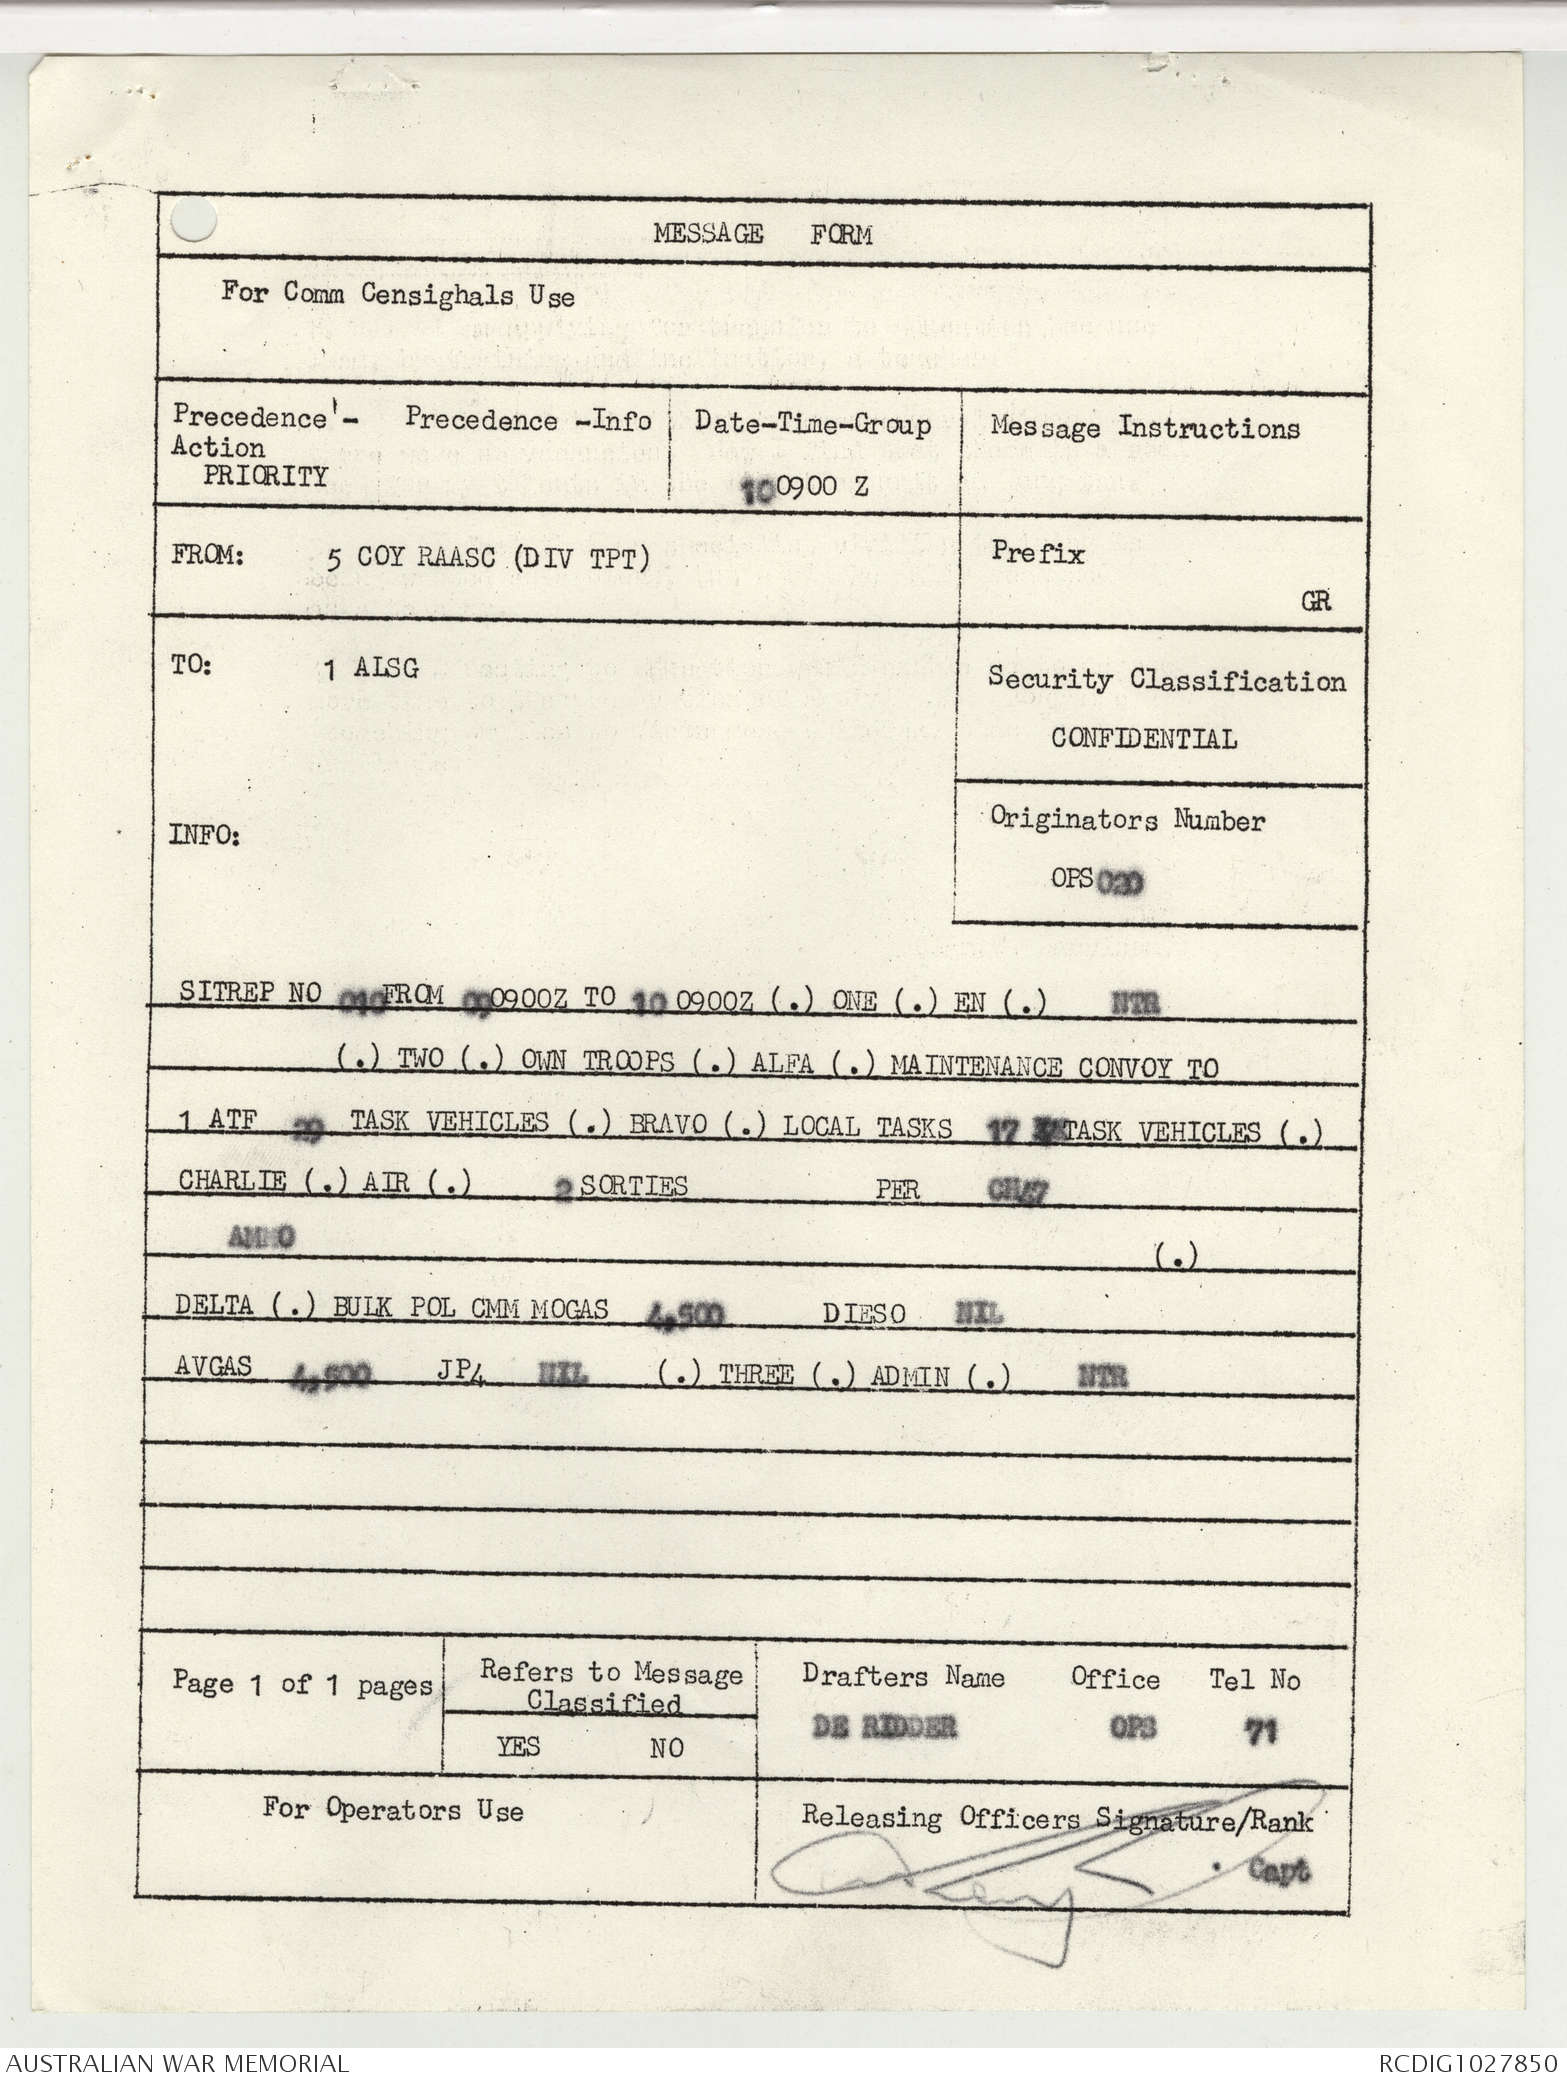 MESSAGE FORM
For Comm Censighals Use
Precedence'- Precedence -Info Date-Time-Group Message Instructions
Action
PRIORITY
100900 Z
FROM: 5 COY RAASC (DIV TPT) Prefix
GR
TO: 1 ALSG Security Classification
CONFIDENTIAL
Originators Number
INFO:
OPS 020
SITREP NO 010 FROM 090900Z TO 10 0900Z (.) ONE (.) EN (.) NTR
(.) TWO (.) OWN TROOPS (.) ALFA (.) MAINTENANCE CONVOY TO
1 ATF 29 TASK VEHICLES (.) BRAVO (.) LOCAL TASKS 17 TASK VEHICLES (.)
CHARLIE (.) AIR (.) 2 SORTIES PER CH47
AMMO (.)
DELTA (.) BULK POL CMM MOGAS 4,500 DIESO NIL
AVGAS 4,500 JP4 NIL (.) THREE (.) ADMIN (.) NTR
Page 1 of 1 pages Refers to Message Drafters Name Office Tel No
Classified
DE RIDDER OPS 71
YES NO
For Operators Use Releasing Officers Signature/Rank
Capt
AUSTRALIAN WAR MEMORIAL RCDIG1027850